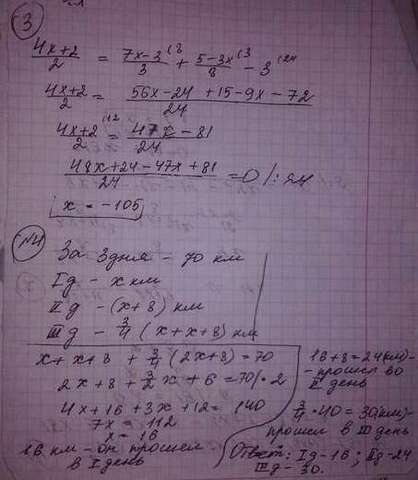 3
(4x+2)/2 = (7x-3)/3 (8 + (5-3x)/8 (3 - 3 (24
(4x+2)/2 = (56x-24+15-9x-72)/24
(4x+2)/2 (12 = (47x-81)/24
(48x+24-47x+81)/24 = 0 /:24
x = -105
№4
За 3 дня - 70 км
I д - x км
II д - (x+8) км
III д - 3/4 (x+x+8) км
x+x+8 + 3/4 (2x+8) = 70
2x+8+ 3/2 x + 6 = 70 /· 2
4x+16+3x+12 = 140
7x = 112
x = 16
16 км - он прошел
в I день
16+8=24(км)-
- прошел во
II день
3/4 · 40 = 30(км)-
прошел в III день
Ответ: I д - 16; II д - 24
III д - 30.